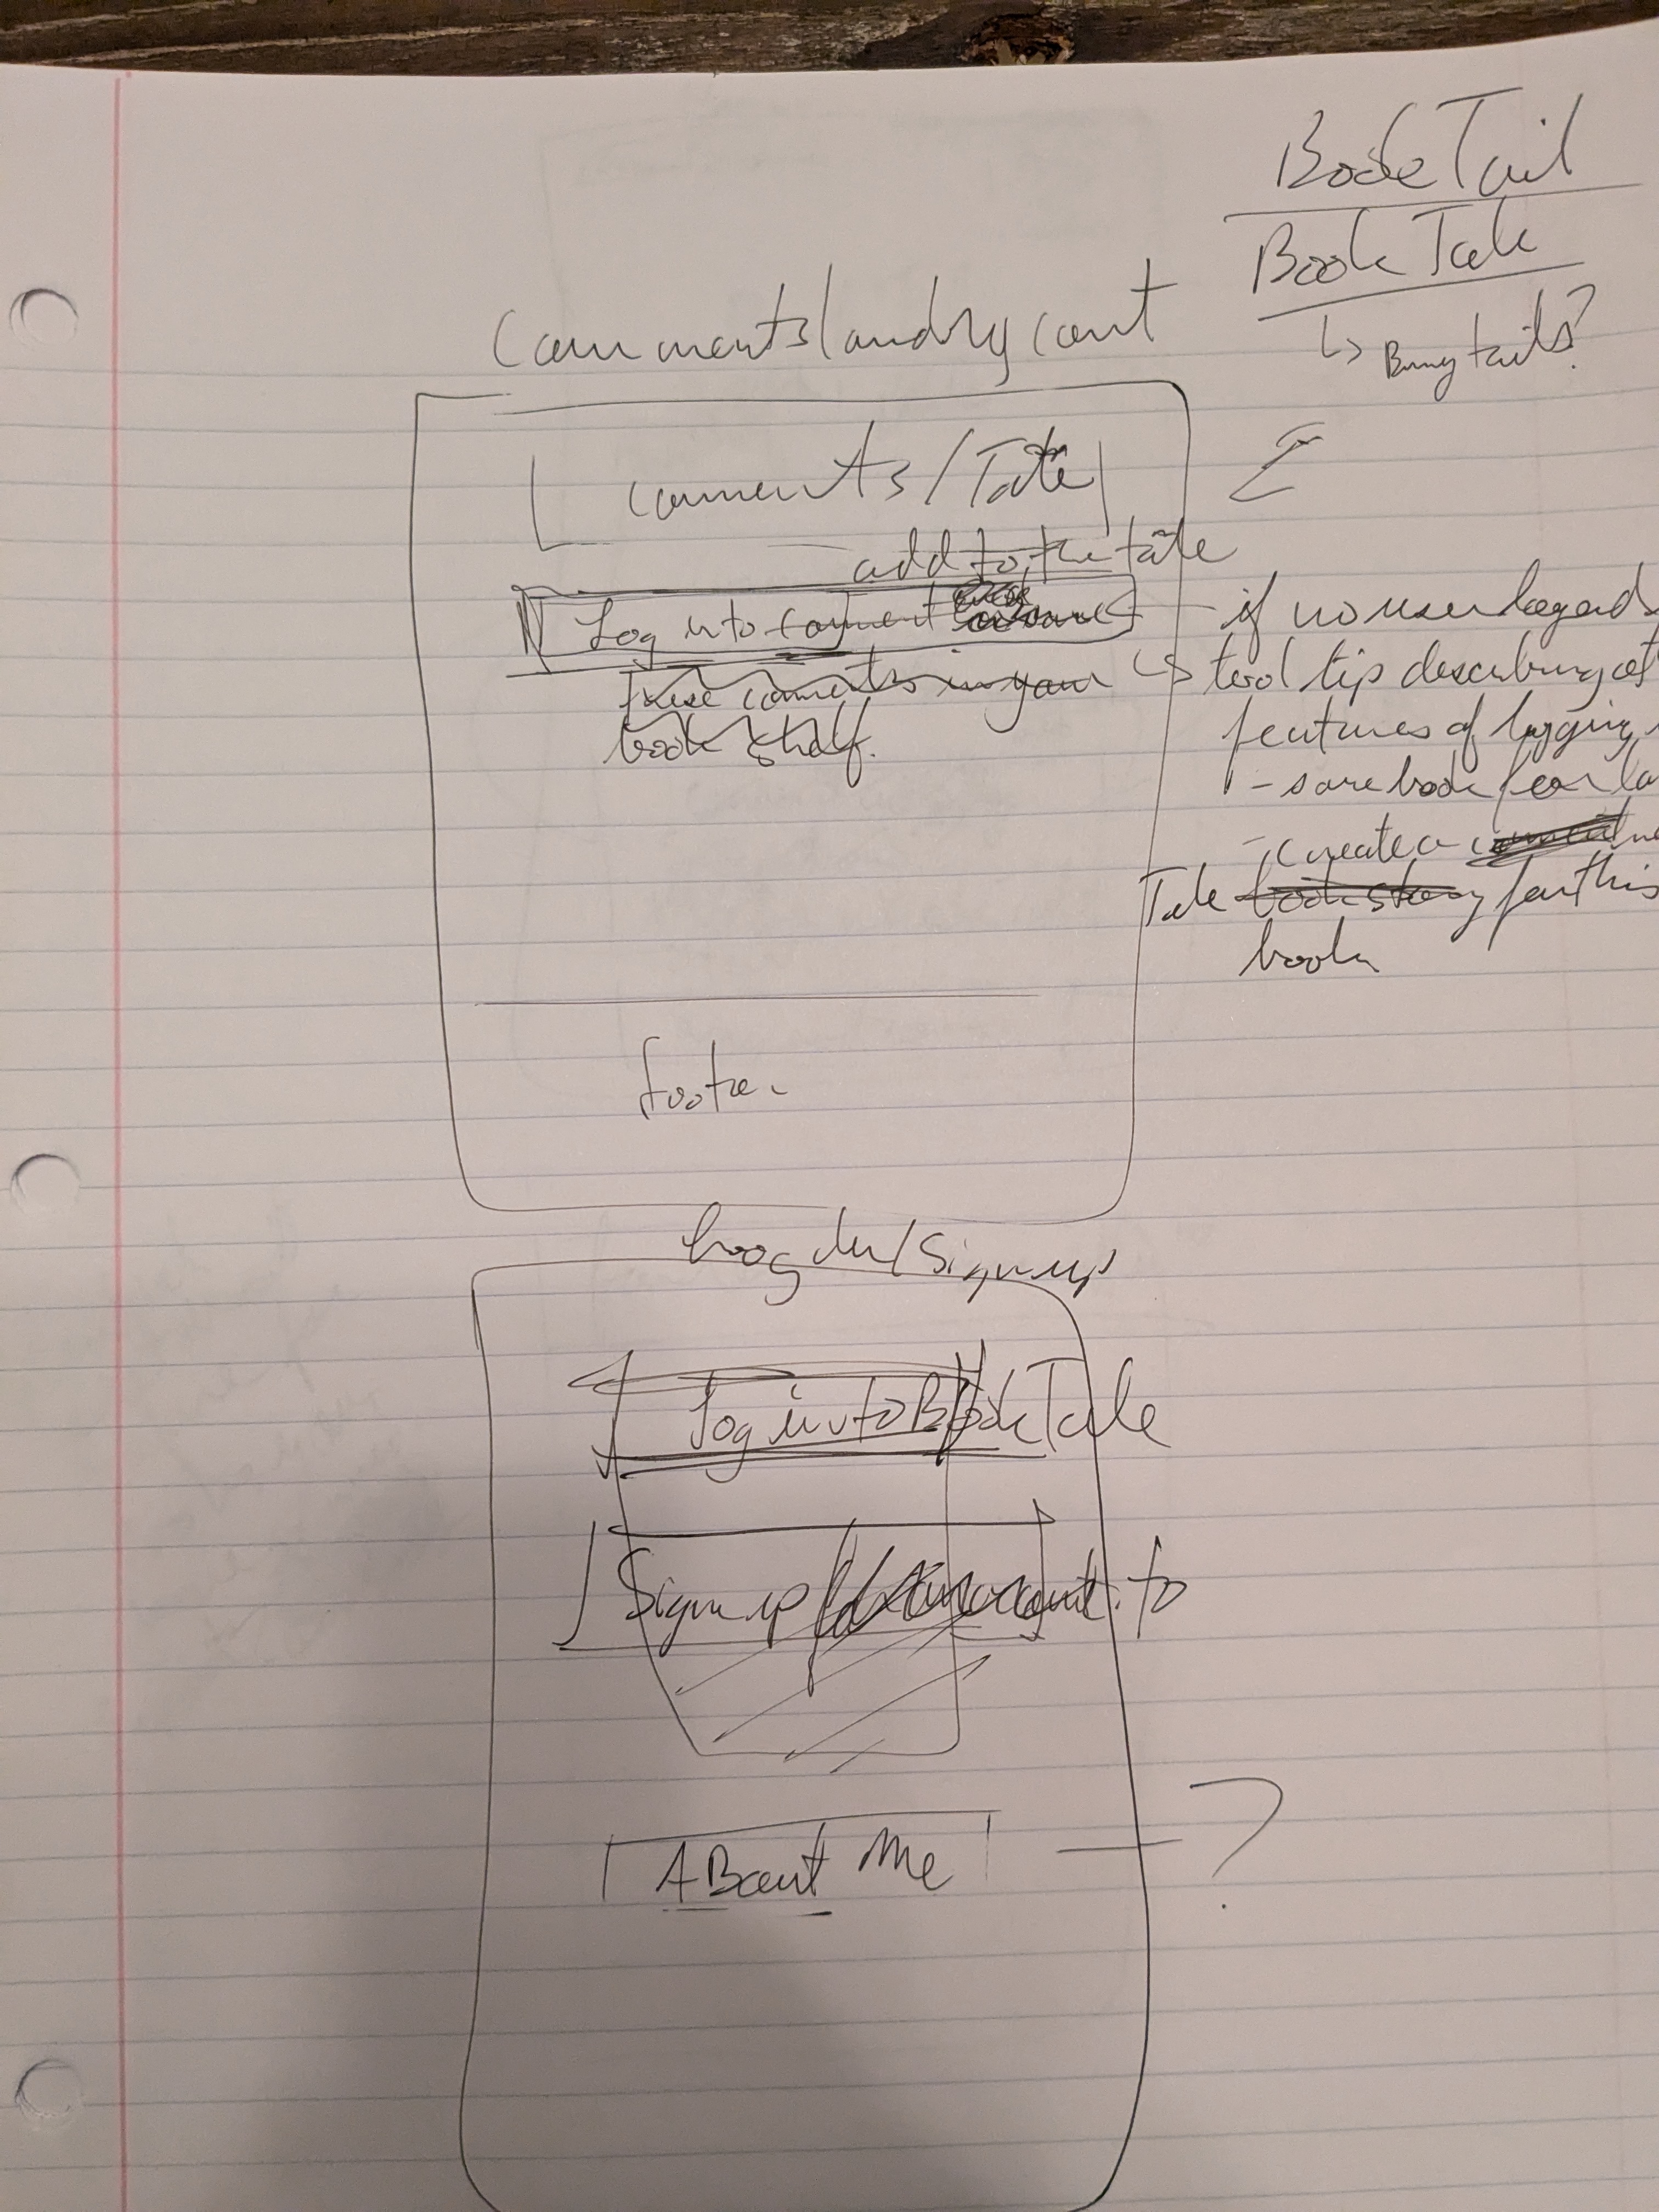 BookTail
Book Tale
↳ Bunny tails?
Comments landing cont
comments/Tale
add to the tale
Log in to comment
these comments in your
book shelf.
if no user logged
↳ tool tip describing
features of logging
- save book for la
- create a
Tale for this
book
footer
/Sign up
Log into BookTale
Sign up to
ABout Me - ?